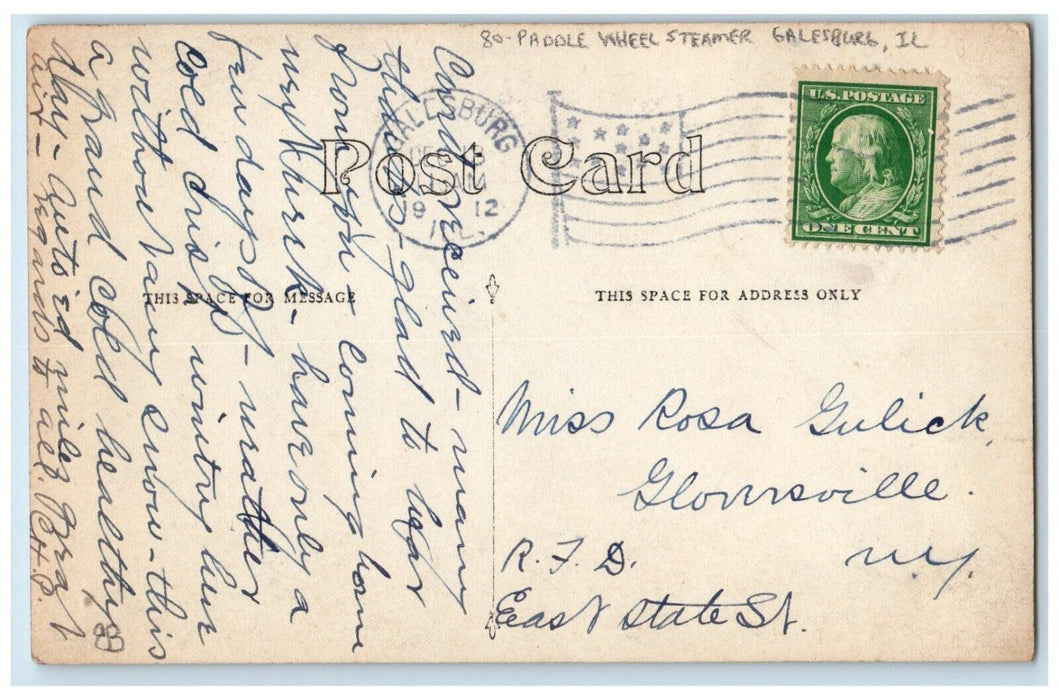 80-PADDLE WHEEL STEAMER GALESBURG, IL
U.S. POSTAGE
ONE CENT
GALESBURG
DEC
19 12
ILL.
Post Card
THIS SPACE FOR MESSAGE
THIS SPACE FOR ADDRESS ONLY
Card received - many
thanks - glad to hear
from you - Coming home
next week - have only a
few days off - weather
cold crisp, wintry here
without any snow - this
a grand cold healthy
day - auto'd miles great
air - regards to all.
Miss Rosa Gulick
Gloversville.
R.F.D. N.Y.
East State St.